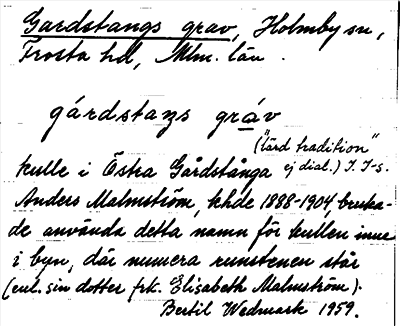 Gardstangs grav, Holmby sn,
Frosta hd, Mlm. län.
gárdstaŋs gráv
("lärd tradition"
kulle i Östra Gårdstånga ej dial.) I. I-s.
Anders Malmström, khde 1888-1904, bruka-
de använda detta namn för kullen inne
i byn, där numera runstenen står
(enl. sin dotter frk. Elisabeth Malmström).
Bertil Wedmark 1959.